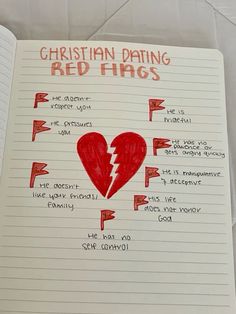 CHRISTIAN DATING
RED FLAGS
He doesn't
respect you
He is
prideful
He pressures
you
He has no
patience or
gets angry quickly
He is manipulative
& deceptive
He doesn't
like your friends/
family
His life
does not honor
God
He has no
self control